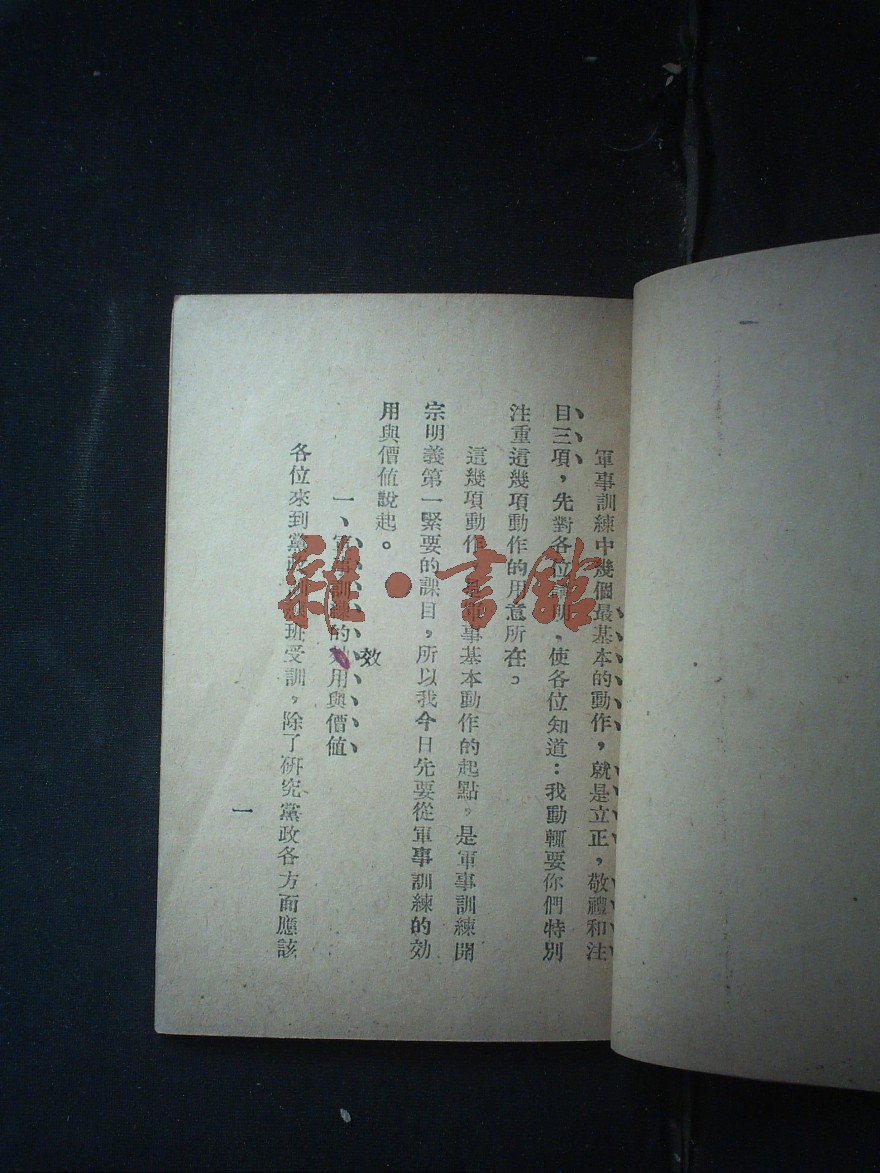 軍事訓練中幾個最基本的動作，就是立正，敬禮和注
目三項，先對各位說明，使各位知道：我動輒要你們特別
注重這幾項動作的用意所在。
這幾項動作是軍事基本動作的起點，是軍事訓練開
宗明義第一緊要的課目，所以我今日先要從軍事訓練的効
用與價值說起。
一、軍事訓練的効用與價值
效
各位來到黨政訓練班受訓，除了研究黨政各方面應該
一
雜·書館